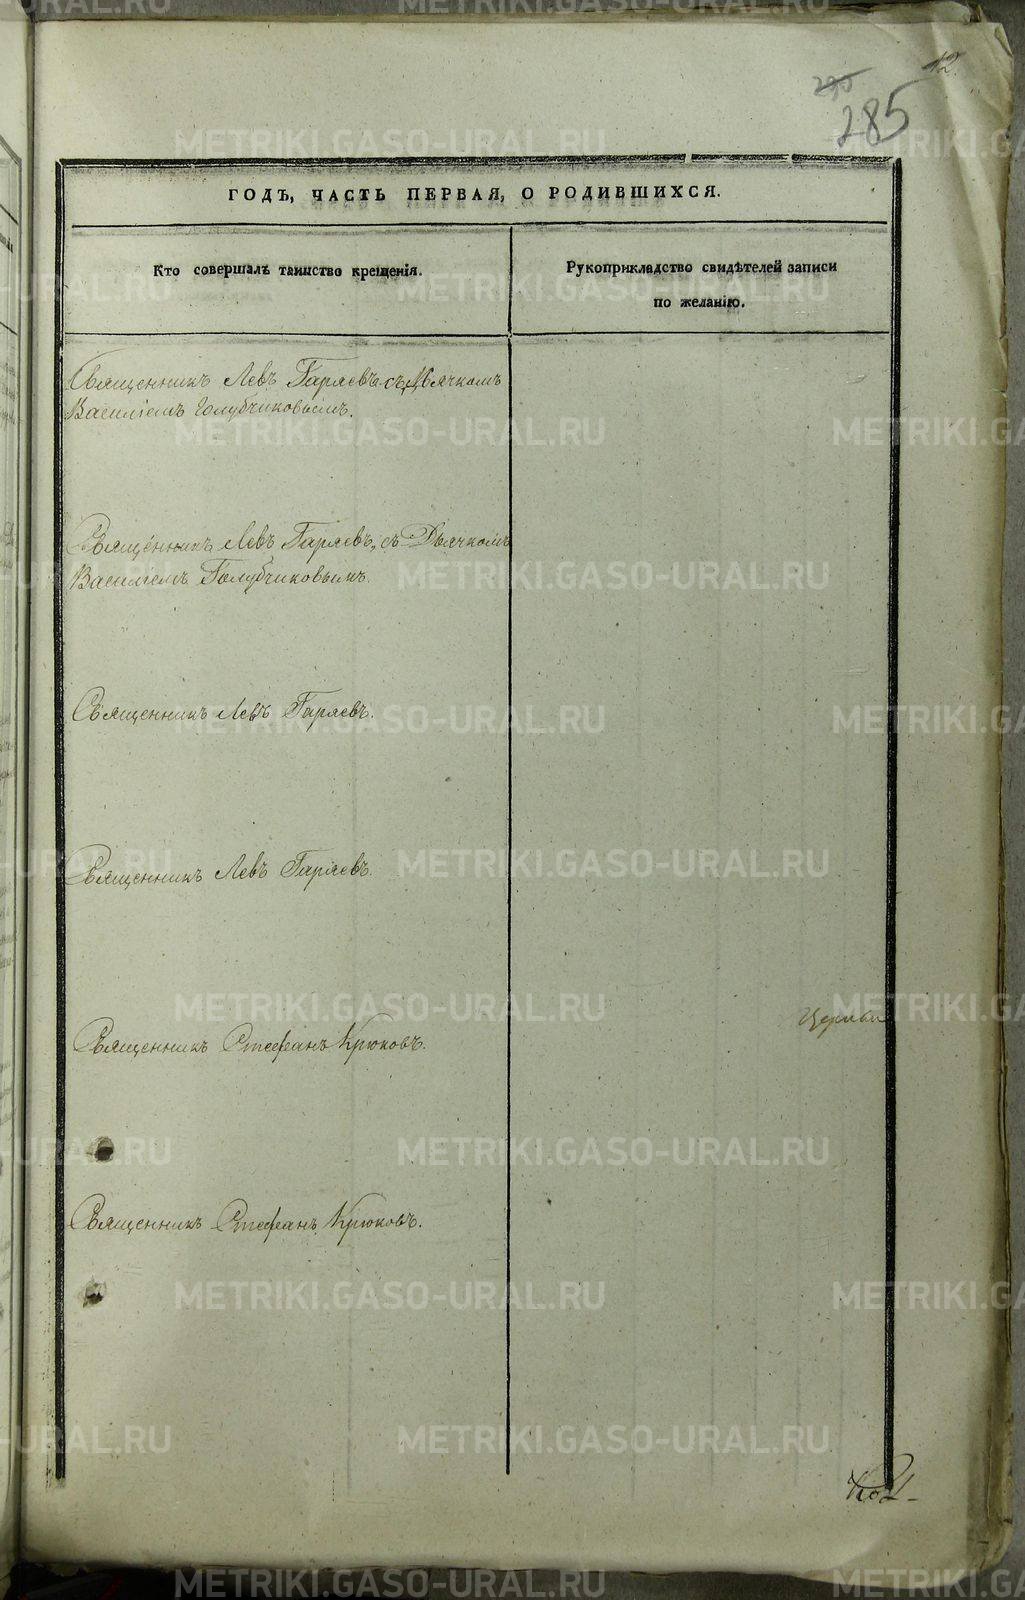 12.
285
ГОДЪ, ЧАСТЬ ПЕРВАЯ, О РОДИВШИХСЯ.
Кто совершалъ таинство крещенія.
Рукоприкладство свидѣтелей записи
по желанію.
Священникъ Левъ Гаряевъ съ Дьячкомъ
Василіемъ Голубчиковымъ.
Священникъ Левъ Гаряевъ, съ Дьячкомъ
Василіемъ Голубчиковымъ.
Священникъ Левъ Гаряевъ.
Священникъ Левъ Гаряевъ.
Священникъ Стефанъ Крюковъ.
Церкви
Священникъ Стефанъ Крюковъ.
METRIKI.GASO-URAL.RU